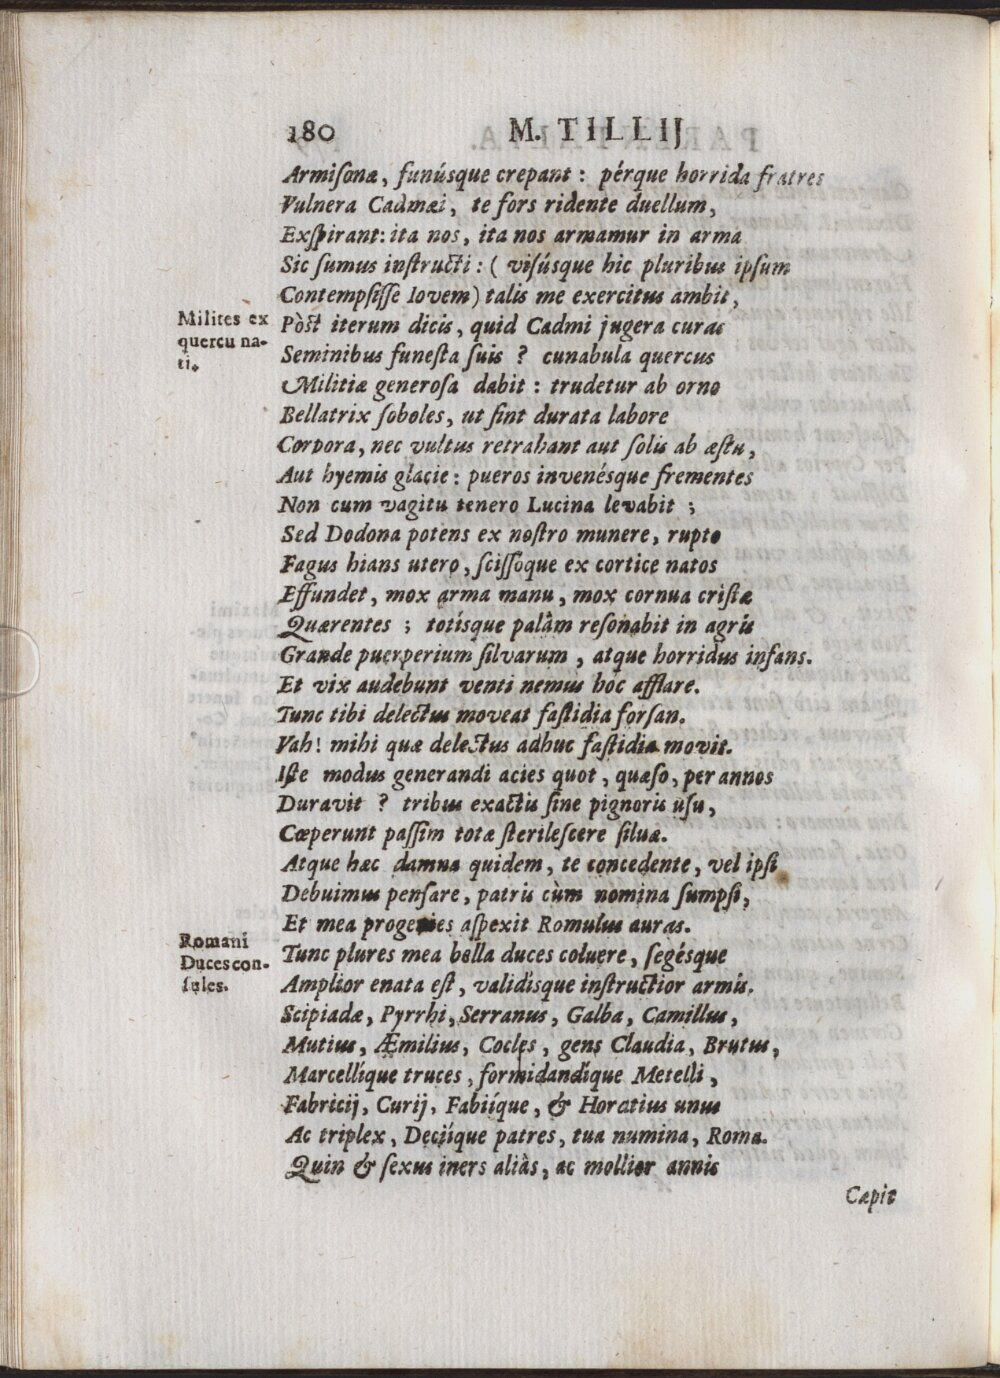 180 M. TILLIJ
Armiſonæ, funúsque crepant : pérque horrida fratres
Vulnera Cadmæi, te fors ridente duellum,
Exſpirant: ita nos, ita nos armamur in arma
Sic ſumus inſtructi : ( viſúsque hic pluribus ipſum
Contempſiſſe Iovem) talis me exercitus ambit,
Milites ex
quercu na-
ti.
Pòst iterum dicis, quid Cadmi jugera curas
Seminibus funeſta ſuis ? cunabula quercus
Militiæ generoſa dabit : trudetur ab orno
Bellatrix ſoboles, ut ſint durata labore
Corpora, nec vultus retrahant aut ſolis ab æſtu,
Aut hyemis glacie : pueros invenésque frementes
Non cum vagitu tenero Lucina levabit ;
Sed Dodona potens ex noſtro munere, rupto
Fagus hians utero, ſciſſoque ex cortice natos
Effundet, mox arma manu, mox cornua criſtæ
Quærentes ; totísque palàm reſonabit in agris
Grande puerperium ſilvarum, atque horridus infans.
Et vix audebunt venti nemus hoc afflare.
Tunc tibi delectus moveat faſtidia forſan.
Vah! mihi quæ delectus adhuc faſtidia movit.
Iſte modus generandi acies quot, quæſo, per annos
Duravit ? tribus exactis ſine pignoris uſu,
Cœperunt paſſim totæ ſterileſcere ſilvæ.
Atque hæc damna quidem, te concedente, vel ipſi
Debuimus penſare, patris cùm nomina ſumpſi,
Et mea progenies aſpexit Romulus auras.
Romani
Duces con-
ſules.
Tunc plures mea bella duces coluere, ſegésque
Amplior enata eſt, validisque inſtructior armis.
Scipiadæ, Pyrrhi, Serranus, Galba, Camillus,
Mutius, Æmilius, Cocles, gens Claudia, Brutus,
Marcellíque truces, formidandíque Metelli,
Fabricij, Curij, Fabiíque, & Horatius unus
Ac triplex, Deciíque patres, tua numina, Roma.
Quin & ſexus iners aliàs, ac mollior annis
Cæpit